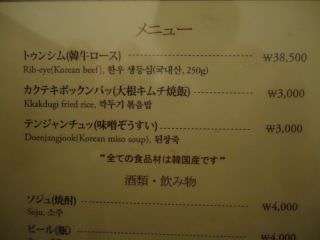 メニュー
トゥンシム(韓牛ロース) ₩38,500
Rib-eye(Korean beef), 한우 생등심(국내산, 250g)
カクテキボックンパッ(大根キムチ焼飯) ₩3,000
Kkakdugi fried rice, 깍두기 볶음밥
テンジャンチュッ(味噌ぞうすい) ₩3,000
Doenjangjook(Korean miso soup), 된장죽
"全ての食品材は韓国産です"
酒類・飲み物
ソジュ(焼酎) ₩4,000
Soju, 소주
ビール(瓶) ₩4,000